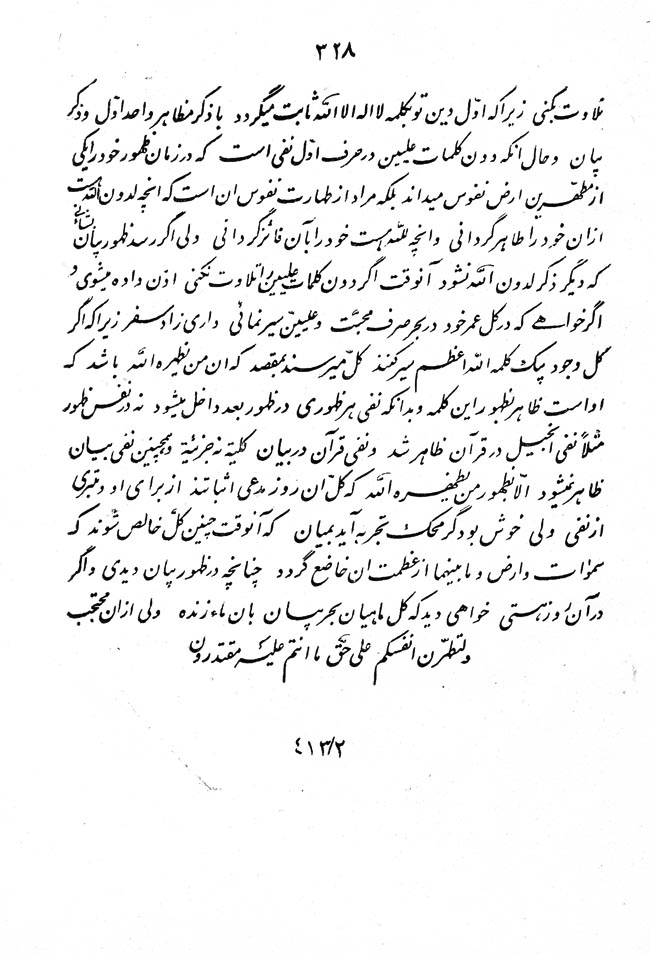 ۳۲۸
تلاوت بکنی زیرا که اوّل دین تو بکلمه لااله الاالله ثابت میگردد با ذکر مظاهر واحد اوّل و ذکر
بیان و حال انکه دون کلمات علیین در حرف اوّل نفی است که در زمان ظهور خود را یکی
از مطهّرین ارض نفوس میداند بلکه مراد از طهارت نفوس ان است که انچه لدون الله است
ازان خود را طاهر گردانی وانچه لله هست خود را بآن فائز گردانی ولی اگر رسد ظهور بیان بشأنی
که دیگر ذکر لدون الله نشود آنوقت اگر دون کلمات علیین را تلاوت نکنی اذن داده میشوی و
اگر خواهے که در کل عمر خود در بحر صرف محبّت و علیین سیر نمائی داری زاد سفر زیرا که اگر
کل وجود بیک کلمه الله اعظم سیر کنند کلّ میرسند بمقصد که ان من یظهره الله باشد که
اواست ظاهر بظهور این کلمه وبدانکه نفی هر ظهوری در ظهور بعد داخل میشود نه در نفس ظهور
مثلاً نفی انجیل در قرآن ظاهر شد و نفی قرآن در بیان کلیّة نه جزئیة و همچنین نفی بیان
ظاهر نمیشود الّا بظهور من یظهره الله که کل ان روز مدعی اثباتند از برای او و متبری
از نفی ولی خوش بود گر محک تجربه آید بمیان که آنوقت چنین کلّ خالص شوند که
سموات وارض و مابینهما از عظمت ان خاضع گردد چنانچه در ظهور بیان دیدی واگر
در آن روز هستی خواهی دید که کل ماهیان بحر بیان بان ماء زنده ولی ازان محتجب
ولتطهّرن انفسکم علی حق ما انتم علیه مقتدرون
٤١٣/٢